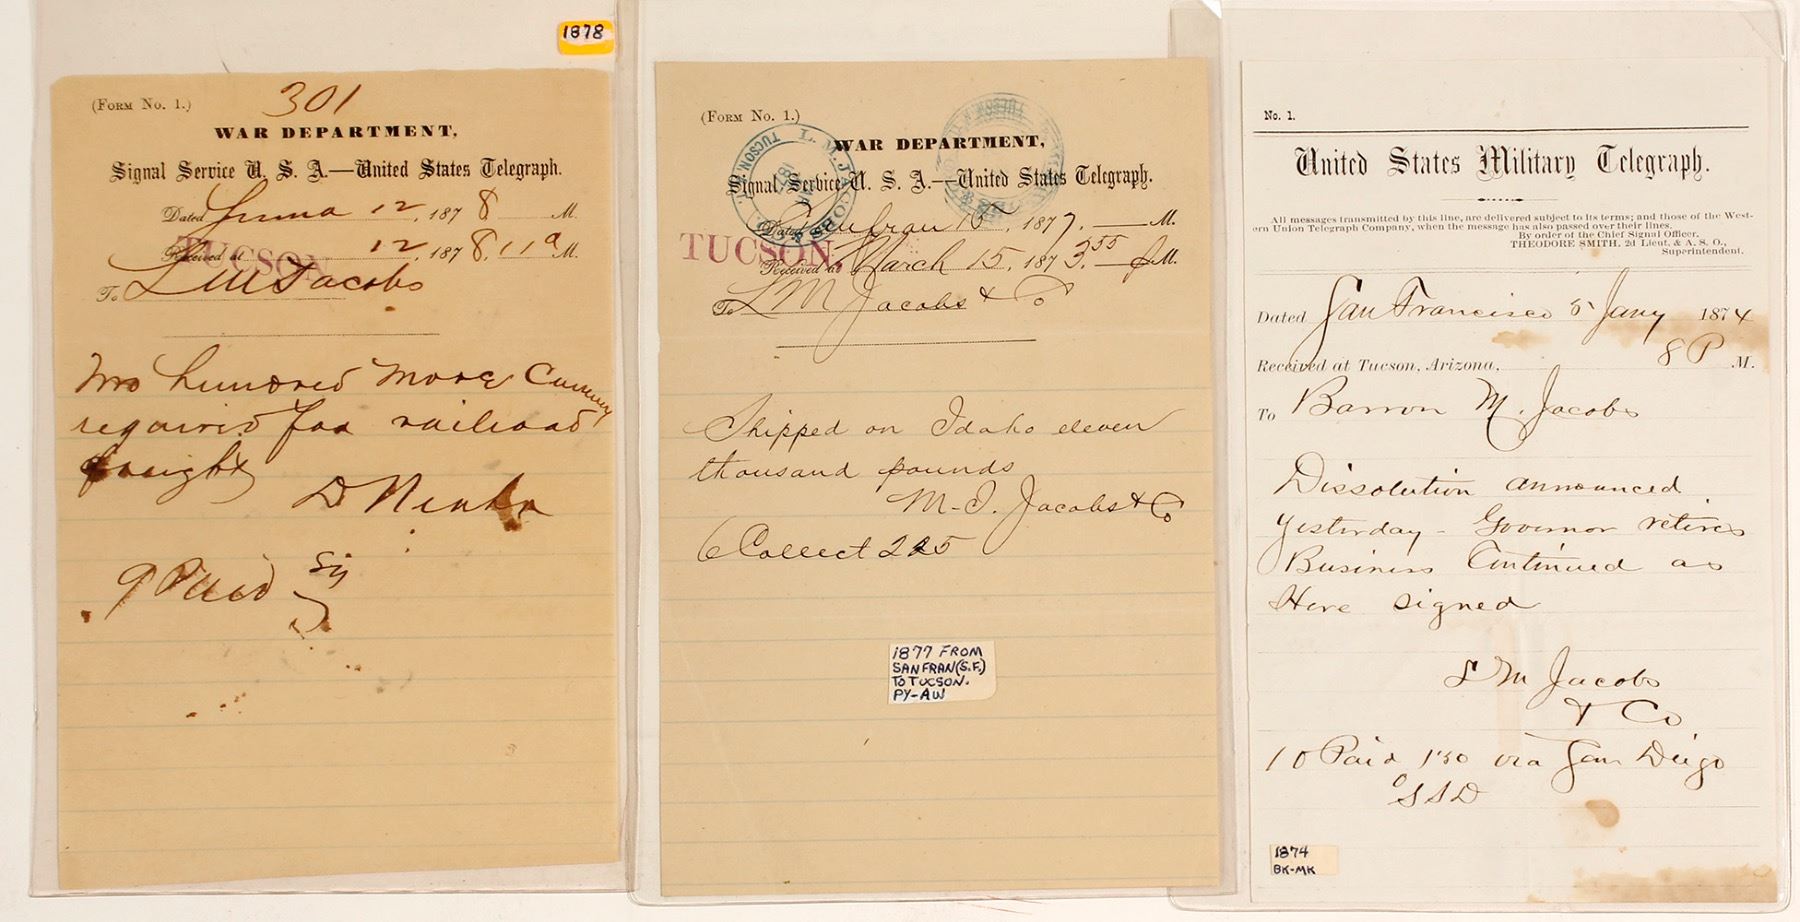 1878
(Form No. 1.)
301
WAR DEPARTMENT,
Signal Service U. S. A.—United States Telegraph.
Dated Yuma 12, 1878 M.
Received at TUCSON 12, 1878, 11 a M.
To L M Jacobs
Two hundred more Currency
required for railroad
freight
9 Paid
(Form No. 1.)
WAR DEPARTMENT,
Signal Service U. S. A.—United States Telegraph.
L. M. JACOBS & CO.
TUCSON
Dated Sanfran 15, 1877. M.
TUCSON.
Received at March 15, 187 3.55 P M.
To L M Jacobs & Co
Shipped on Idaho eleven
thousand pounds
M. I. Jacobs & Co
6 Collect 225
1877 FROM
SAN FRAN (S.F.)
TO TUCSON.
PY-AW
No. 1.
United States Military Telegraph.
All messages transmitted by this line, are delivered subject to its terms; and those of the West-
ern Union Telegraph Company, when the message has also passed over their lines.
By order of the Chief Signal Officer,
THEODORE SMITH, 2d Lieut. & A. S. O.,
Superintendent.
Dated San Francisco 5 Jany 1874
Received at Tucson, Arizona, 8 P M.
To Barron M. Jacobs
Dissolution announced
yesterday - Governor retires
Business Continued as
Here signed
L M Jacobs
& Co
10 Paid 1.50 via San Diego
SSD
1874
BK-MK